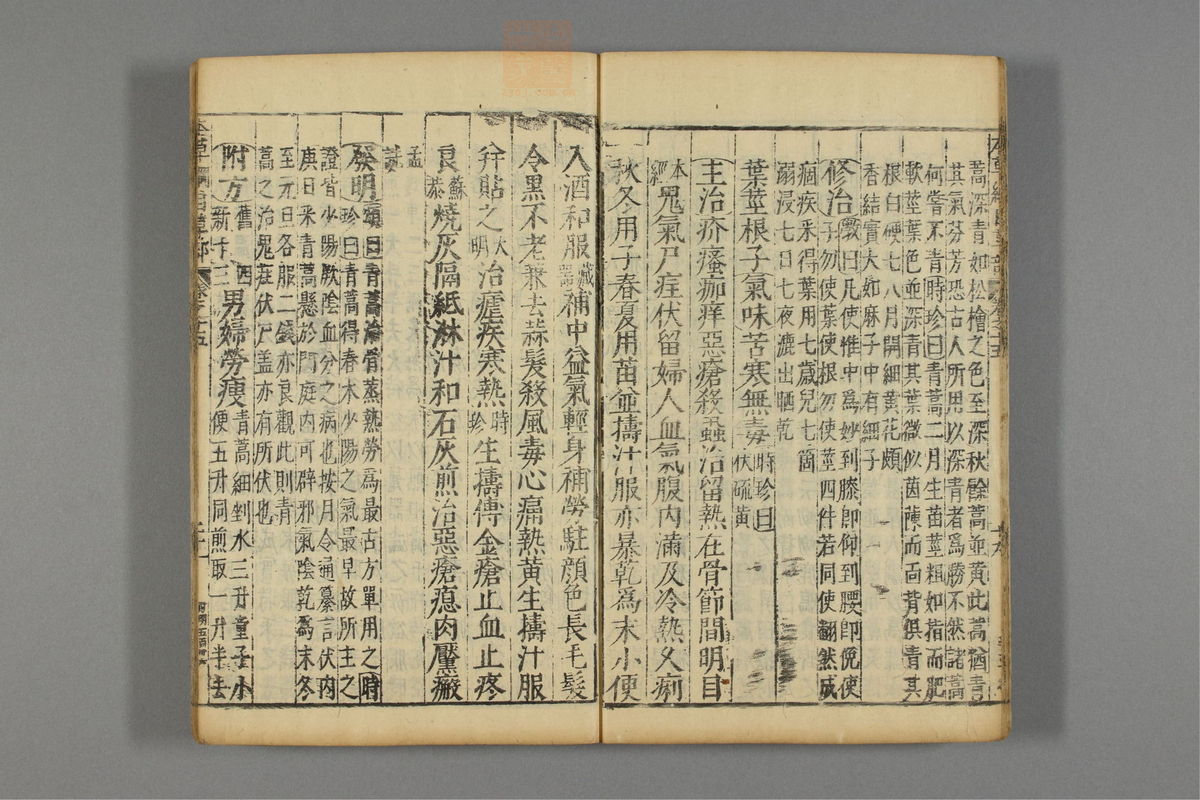 蒿深青如松檜之色至深秋餘蒿並黃此蒿猶青
其氣芬芳恐古人所用以深青者爲勝不然諸蒿
何嘗不青時珍曰青蒿二月生苗莖粗如指而肥
軟莖葉色並深青其葉微似茵蔯而面背俱青其
根白硬七八月開細黃花頗
香結實大如麻子中有細子
修治斆曰凡使惟中爲妙到膝即仰到腰即俛使
子勿使葉使根勿使莖四件若同使翻然成
痼疾采得葉用七歲兒七箇
溺浸七日七夜漉出晒乾
葉莖根子氣味苦寒無毒時珍曰
伏硫黃
主治疥瘙痂痒惡瘡殺蝨治留熱在骨節間明目
本經
鬼氣尸疰伏留婦人血氣腹内滿及冷熱久痢
秋冬用子春夏用苗並擣汁服亦暴乾爲末小便
入酒和服藏器補中益氣輕身補勞駐顏色長毛髮
令黑不老兼去蒜髮殺風毒心痛熱黃生擣汁服
幷貼之大明治瘧疾寒熱時珍生擣傅金瘡止血止疼
良蘇恭燒灰隔紙淋汁和石灰煎治惡瘡瘜肉黶瘢
孟詵
發明頌曰青蒿治骨蒸熱勞爲最古方單用之時
珍曰青蒿得春木少陽之氣最早故所主之
證皆少陽厥陰血分之病也按月令通纂言伏内
庚日采青蒿懸於門庭内可辟邪氣陰乾爲末冬
至元旦各服二錢亦良觀此則青
蒿之治鬼疰伏尸盖亦有所伏也
附方舊四
新十三男婦勞瘦青蒿細剉水三升童子小
便五升同煎取一升半去